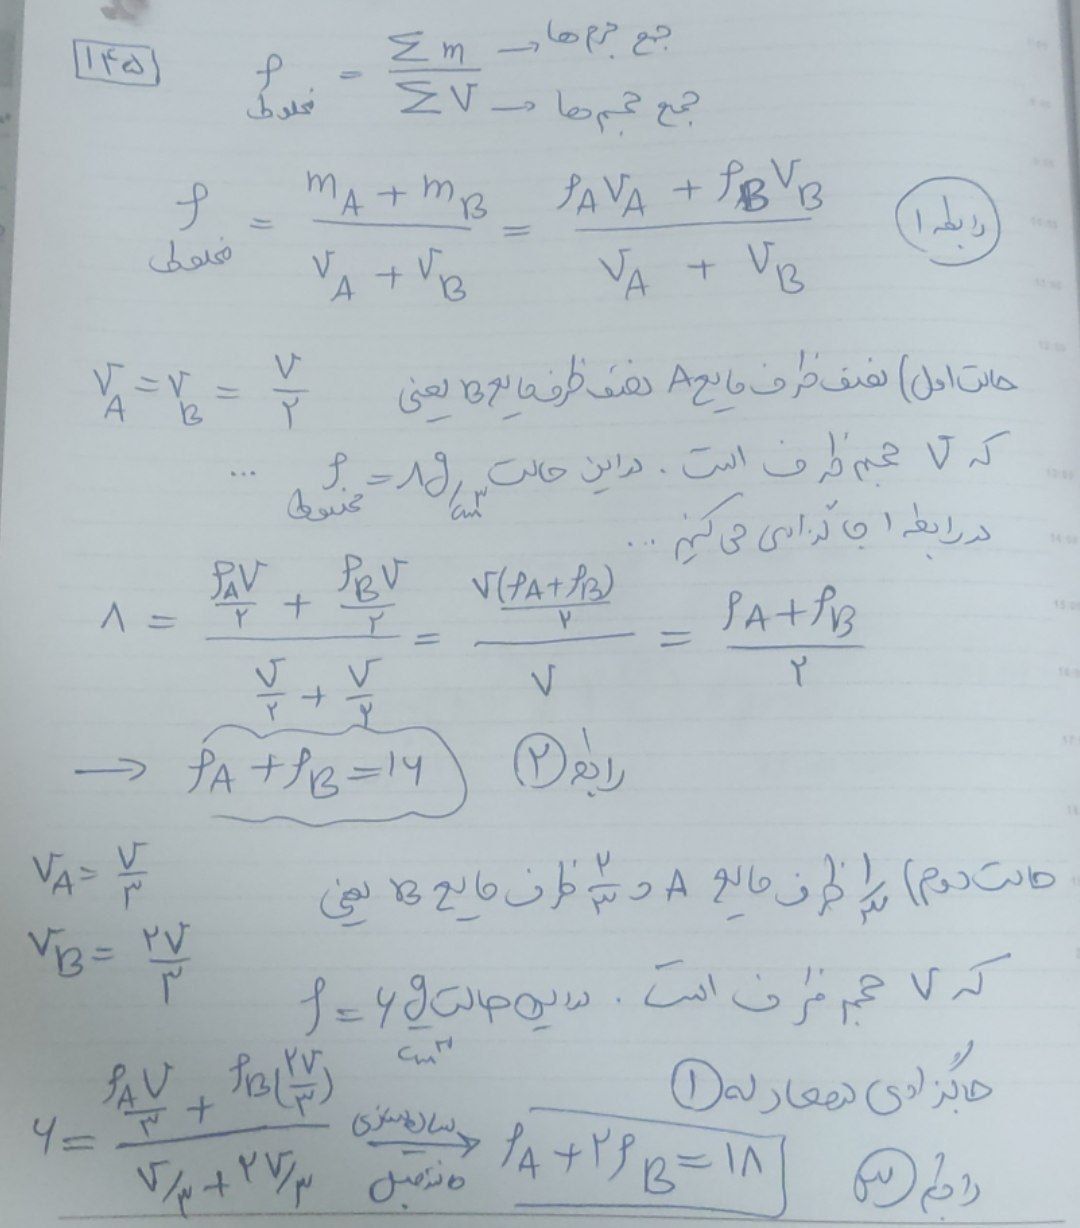 ۱۴۵
ρ مخلوط = Σm / ΣV
Σm → جمع جرم ها
ΣV → جمع حجم ها
ρ مخلوط = (m_A + m_B) / (V_A + V_B) = (ρ_A V_A + ρ_B V_B) / (V_A + V_B) رابطه ۱
حالت اول) نصف ظرف مایع A نصف ظرف مایع B یعنی V_A = V_B = V/۲
که V حجم ظرف است . در این حالت ρ مخلوط = ۸ g/cm³ ...
در رابطه ۱ جاگذاری می کنیم ...
۸ = (ρ_A V/۲ + ρ_B V/۲) / (V/۲ + V/۲) = (V(ρ_A + ρ_B)/۲) / V = (ρ_A + ρ_B) / ۲
→ ρ_A + ρ_B = ۱۶ رابطه ۲
حالت دوم) ۱/۳ ظرف مایع A و ۲/۳ ظرف مایع B یعنی V_A = V/۳
V_B = ۲V/۳
که V حجم ظرف است . در این حالت ρ = ۶ g/cm³
جاگذاری در معادله ۱
۶ = (ρ_A V/۳ + ρ_B (۲V/۳)) / (V/۳ + ۲V/۳) ساده سازی مانند قبل → ρ_A + ۲ρ_B = ۱۸ رابطه ۳